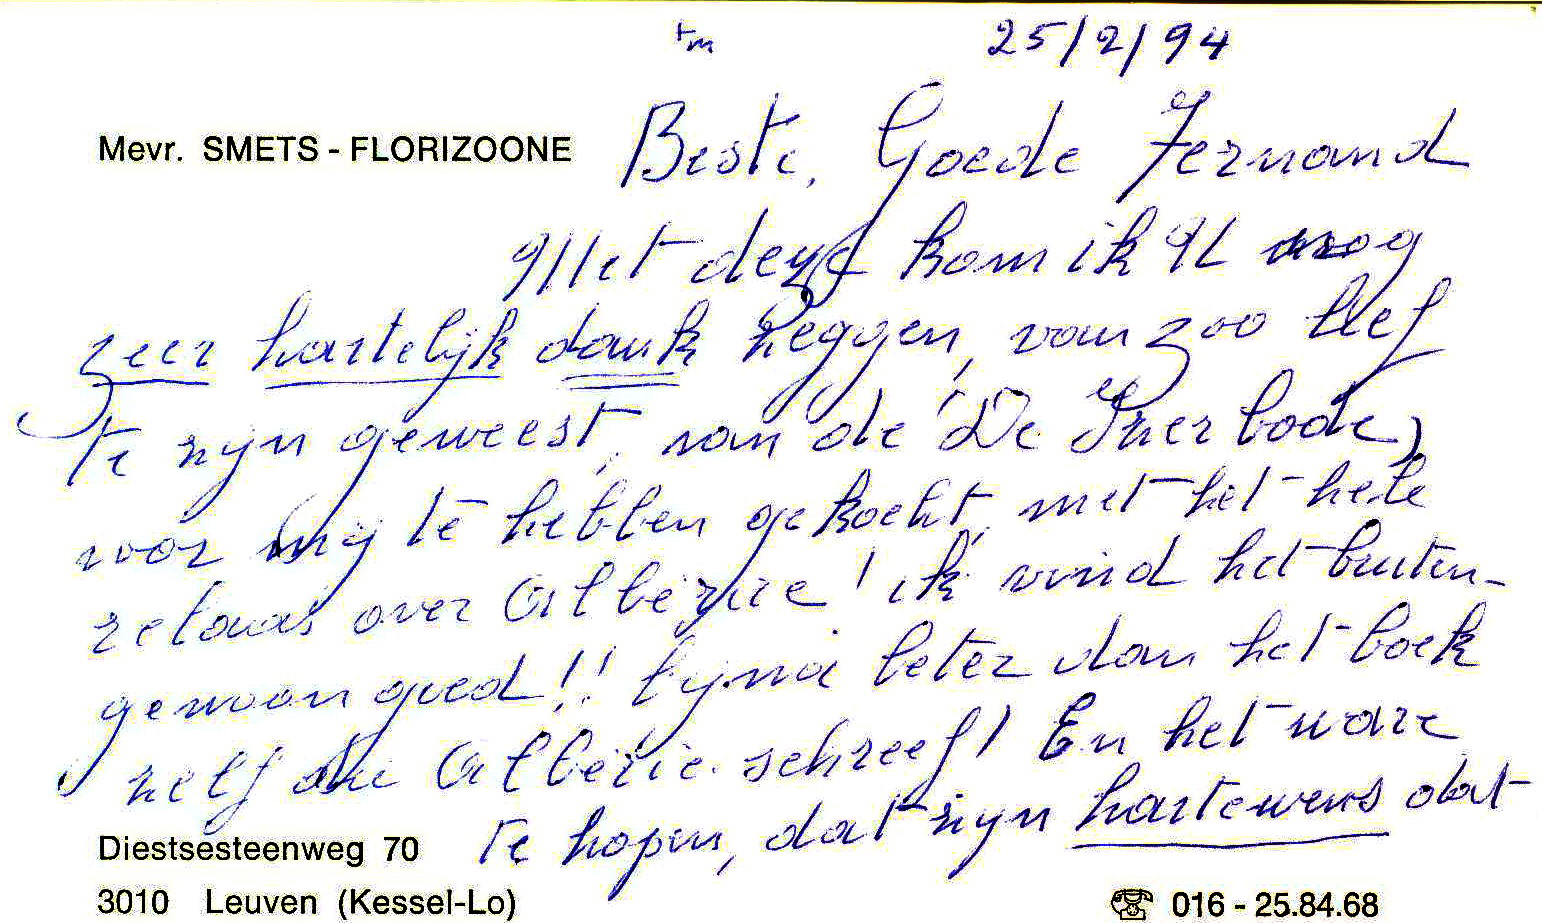 +m 25/2/94
Mevr. SMETS - FLORIZOONE
Beste, Goede Fernand
Met deze kom ik U nog
zeer hartelijk dank zeggen, van zoo lief
te zijn geweest, van de "De Ijzerbode,
voor mij te hebben gekocht, met het hele
relaas over Alberic! ik vind het buiten-
gewoon goed!! bijna beter dan het boek
zelf die Alberic schreef! En het ware
te hopen, dat zijn hartewens dat
Diestsesteenweg 70
3010 Leuven (Kessel-Lo)
☎ 016 - 25.84.68